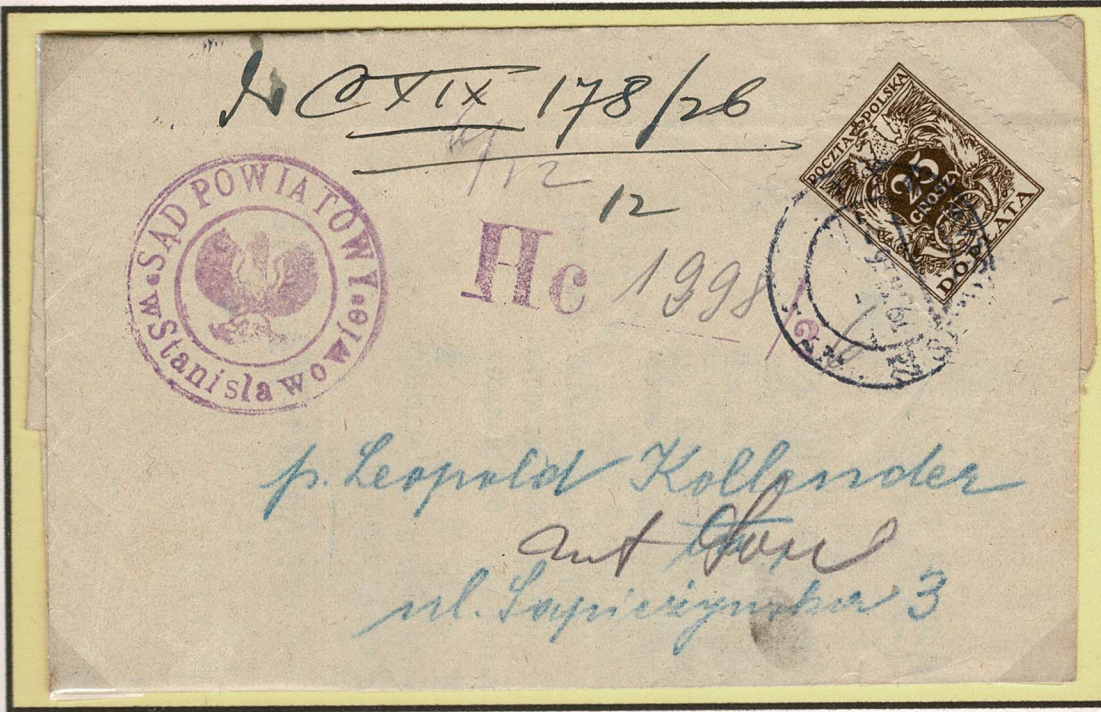 C XIX 178/26
12
SĄD POWIATOWY
w Stanisławowie
Hc 1998
POCZTA POLSKA
25
GROSZY
DOPŁATA
p. Leopold Kollender
ul. Sapieżyńska 3